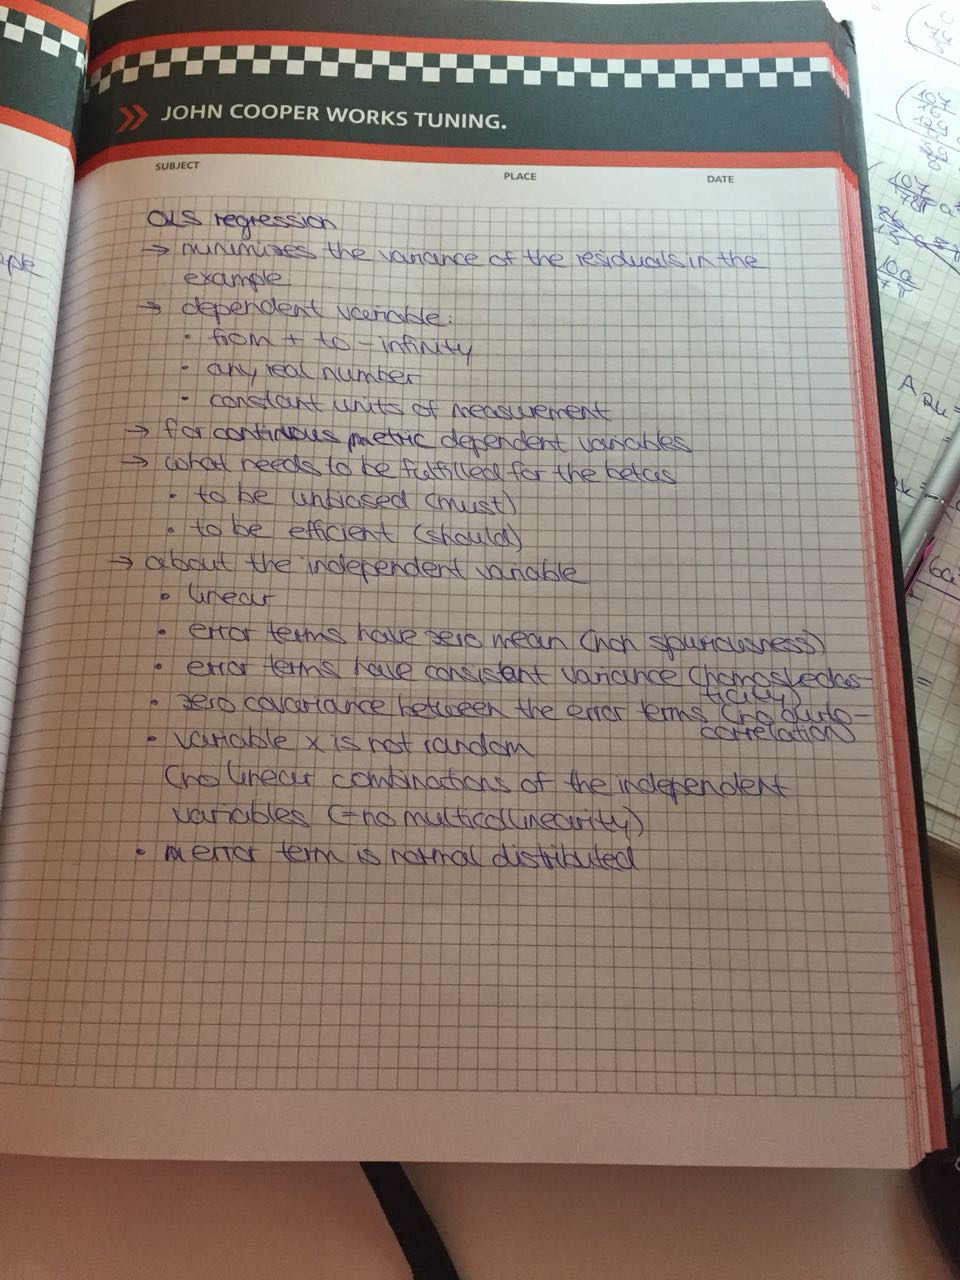 JOHN COOPER WORKS TUNING.
SUBJECT
PLACE
DATE
OLS regression
→ minimizes the variance of the residuals in the
example
→ dependent variable:
• from + to - infinity
• any real number
• constant units of measurement
→ for continuous metric dependent variables
→ what needs to be fulfilled for the betas
• to be unbiased (must)
• to be efficient (should)
→ about the independent variable
• linear
• error terms have zero mean (non spuriousness)
• error terms have consistent variance (homoskedas-
ticity)
• zero covariance between the error terms (no auto-
correlation)
• variable x is not random
(no linear combinations of the independent
variables (=no multicollinearity)
• error term is normal distributed